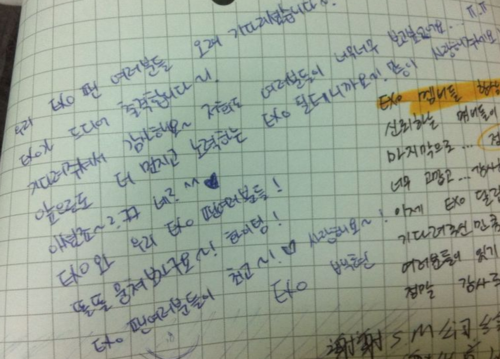 우리 EXO 팬 여러분들 오래 기다리셨습니다~.
EXO가 드디어 출격합니다~!.
기다려주셔서 감사해요~ 저희도 여러분들이 너무너무 보고팠어요. ㅠ.ㅠ
앞으로도 더 멋지고 노력하는 EXO 될테니까요~! 많이 사랑해주세요
아셨죠~? 네?~ ♥
EXO와 우리 EXO 팬여러분들!
똘똘 뭉쳐보자구요~! 화이팅!
EXO 팬여러분들이 최고~! ♡ 사랑해요~!
EXO 백현
EXO 멤버들 항상
신뢰하는 멤버들이
마지막으로...
너무 고맙고... 감사
이제 EXO
기다려주신 만
여러분들이 있기
정말 감사
SM